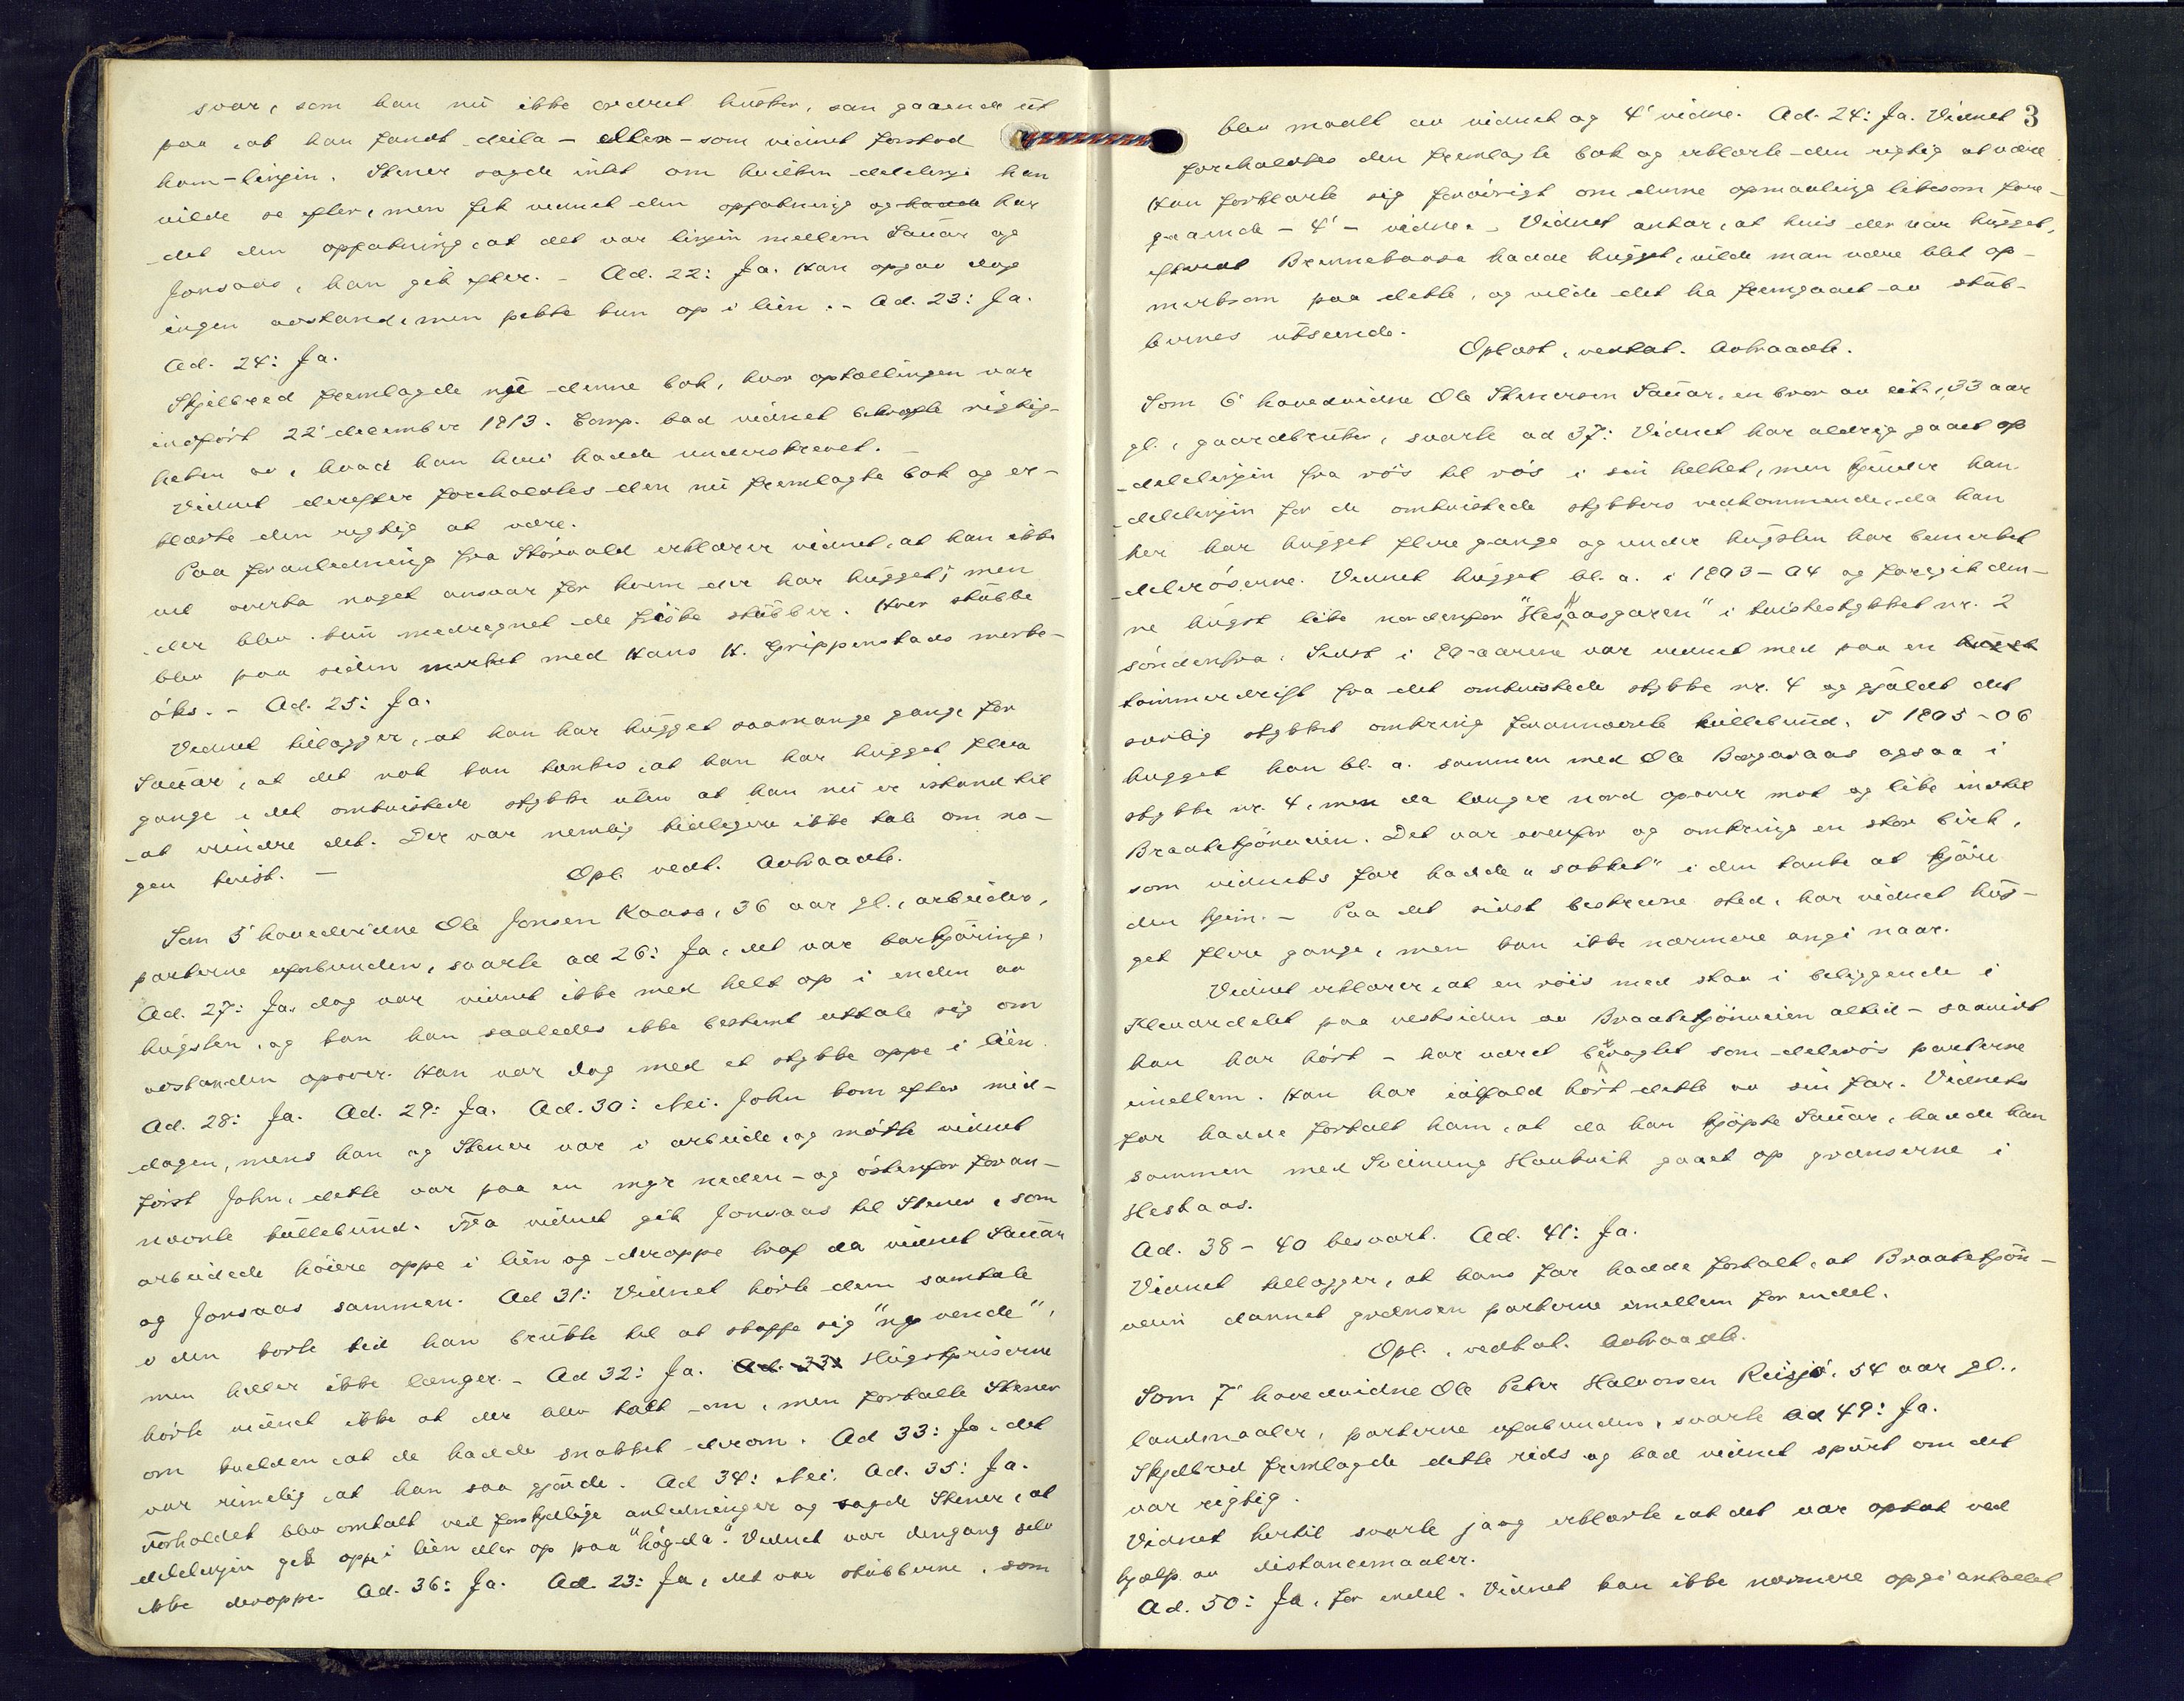 svar, som han nu ikke ordret husker, var gaaende ut
paa, at han fandt deila - eller - som vidnet forstod
ham - linjen. Stener sagde intet om hvilken delelinje han
vilde se efter, men fik vidnet den opfatning og hadde har
det den oppfatning, at det var linjen mellem Sauar og
Jonsaas, han gik efter. - Ad. 22: Ja. Han opgav dog
ingen avstand, men pekte kun op i lien. - Ad. 23: Ja.
Ad. 24: Ja.
Skjelbred fremlagde nu denne bok, hvor optællingen var
indført 22' december 1913. Comp. bad vidnet bekræfte rigtig-
heten av, hvad han heri hadde underskrevet. -
Vidnet derefter foreholdtes den nu fremlagte bok og er-
klærte den rigtig at være.
Paa foranledning fra Stórvald erklærer vidnet, at han ikke
vil overta noget ansvar for hvem der har hugget; men
der blev kun medregnet de friske stubber. Hver stubbe
blev paa siden merket med Hans H. Grippenstads merke-
öks. - Ad. 25: Ja.
Vidnet tilægger, at han har hugget saamange gange for
Sauar, at det nok kan tænkes, at han har hugget flere
gange i det omtvistede stykke uten at han nu er istand til
at erindre det. Der var nemlig tidligere ikke tale om no-
gen tvist. - Opl. vedt. Avtraadte.
Som 5' hovedvidne Ole Jonsen Kaasa, 36 aar gl., arbeider,
parterne uforbunden, svarte ad 26: Ja, det var barkjöring.
Ad. 27: Ja, dog var vidnet ikke med helt op i enden av
hugsten, og kan han saaledes ikke bestemt uttale sig om
avstanden opover. Han var dog med et stykke oppe i lien.
Ad. 28: Ja. Ad. 29: Ja. Ad. 30: Nei. John kom efter mid-
dagen, mens han og Stener var i arbeide, og mötte vidnet
först John, dette var paa en myr neden- og östenfor foran-
nævnte kullebund. Fra vidnet gik Jonsaas til Stener, som
arbeidede höiere oppe i lien og deroppe traf da vidnet Sauar
og Jonsaas sammen. Ad 31: Vidnet hörte dem samtale
i den korte tid han brukte til at stoppe sig "ny vende",
men heller ikke længer. - Ad 32: Ja. Ad. 33: Hugstpriserne
hörte vidnet ikke at der blev talt om, men fortalte Stener
om kvelden, at de hadde snakket derom. Ad 33: Ja, det
var rimelig, at han saa gjorde. Ad 34: Nei. Ad. 35: Ja.
Forholdet blev omtalt ved forskjellige anledninger og sagde Stener, at
delelinjen gik oppi lien eller op paa "högda". Vidnet var dengang selv
ikke deroppe. Ad. 36: Ja. Ad. 23: Ja, det var stubberne, som
3
blev maalt av vidnet og 4' vidne. Ad. 24: Ja. Vidnet
foreholdtes den fremlagte bok og erklærte den rigtig at være.
Han forklarte sig forövrigt om denne opmaaling likesom fore-
gaaende - 4' - vidne. - Vidnet antar, at hvis der var hugget,
efterat Brennekaasa hadde hugget, vilde man være blit op-
merksom paa dette, og vilde det ha fremgaaet av stub-
bernes utseende.
Oplæst, vedtat. Avtraadte.
Som 6' hovedvidne Ole Stenersen Sauar, en bror av cit., 33 aar
gl., gaardbruker, svarte ad 37: Vidnet har aldrig gaaet op
delelinjen fra rös til rös i sin helhet, men kjender han
delelinjen for de omtvistede stykkers vedkommende, da han
her har hugget flere gange og under hugsten har bemerket
deleröserne. Vidnet hugget bl. a. i 1903-04 og foregik den-
ne hugst like nordenfor "Hestaasgaren" i tvistestykket nr. 2
söndenfra. Sidst i 90-aarene var vidnet med paa en hugst
tömmerdrift fra det omtvistede stykke nr. 4 og gjaldt det
særlig stykket omkring forannævnte kullebund. I 1905-06
hugget han bl. a. sammen med Ole Borgeraas ogsaa i
stykke nr. 4, men da længer nord opover mot og like indtil
Braatetjönnveien. Det var ovenfor og omkring en stor birk,
som vidnets far hadde "sokket" i den tanke at kjöre
den hjem. - Paa det sidst beskrevne sted, har vidnet hug-
get flere gange, men kan ikke nærmere angi naar.
Vidnet erklærer, at en röis med stav i beliggende i
Klevardalet paa vestsiden av Braatetjönnveien altid - saavidt
han har hört - har været betragtet som delerös parterne
imellem. Han har ialfald hört dette av sin far. Vidnets
far hadde fortalt ham, at da han kjöpte Sauar, hadde han
sammen med Sveinung Haukvik gaaet op grænserne i
Hestaas.
Ad. 38 - 40 besvart. Ad. 41: Ja.
Vidnet tillægger, at hans far hadde fortalt, at Braatetjön-
veien dannet grænsen parterne imellem for endel.
Opl., vedtat. Avtraadte.
Som 7' hovedvidne Ole Peter Halvorsen Reisjö, 54 aar gl.,
landmaaler, parterne uforbunden, svarte ad 49: Ja.
Skjelbred fremlagde dette rids og bad vidnet spurt om det
var rigtig.
Vidnet hertil svarte ja og erklærte, at det var optat ved
hjælp av distancemaaler.
Ad. 50: Ja, for endel. Vidnet kan ikke nærmere opgi antallet